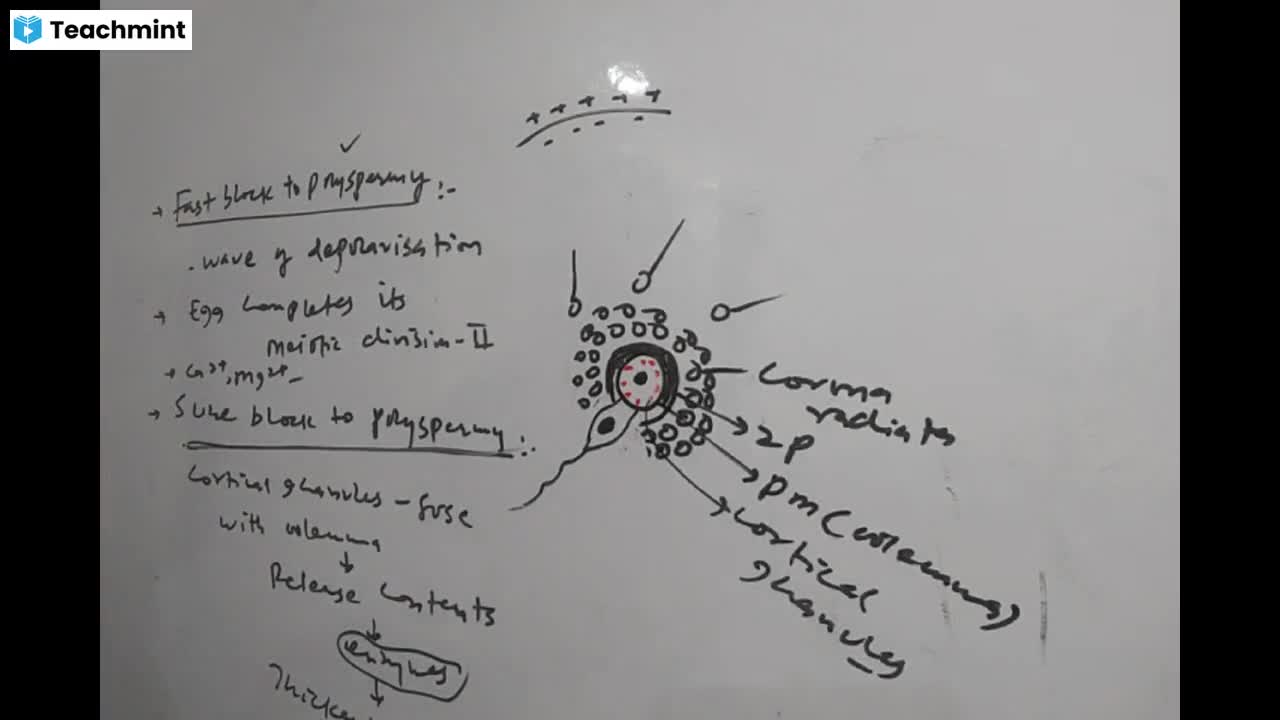 Teachmint
→ Fast block to polyspermy :-
. wave of depolarisation
→ Egg completes its
meiotic division - II
→ Ca2+, Mg2+ -
→ Sure block to polyspermy :-
Cortical granules - fuse
with oolemma
↓
Release contents
↓
enzymes
↓
corona
radiata
ZP
PM (oolemma)
cortical
granules